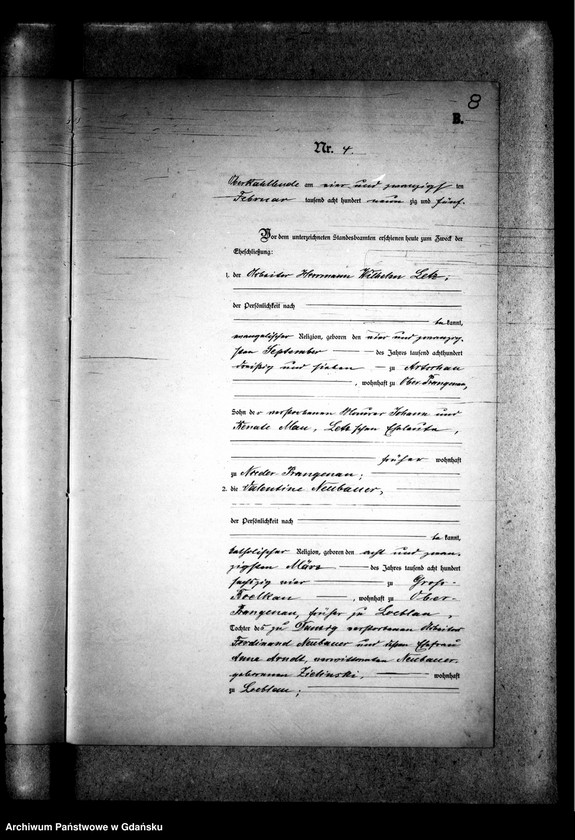 8
B.
Nr. 4.
Oberkahlbude am vier und zwanzigsten
Februar tausend acht hundert neunzig und fünf.
Vor dem unterzeichneten Standesbeamten erschienen heute zum Zweck der
Eheschließung:
1. der Arbeiter Herrmann Wilhelm Letz,
der Persönlichkeit nach
bekannt,
evangelischer Religion, geboren den vier und zwanzig-
sten September des Jahres tausend achthundert
dreißig und sieben zu
, wohnhaft zu Ober Prangenau,
Sohn der verstorbenen Maurer Johann und
Renate Mau, Letz'schen Eheleute,
früher wohnhaft
zu Nieder Prangenau;
2. die Valentine Neubauer,
der Persönlichkeit nach
bekannt,
katholischer Religion, geboren den acht und zwan-
zigsten März des Jahres tausend acht hundert
sechszig vier zu Groß-
Boelkau, wohnhaft zu Ober-
Prangenau, früher zu Loeblau,
Tochter des zu verstorbenen Arbeiter
Ferdinand Neubauer und dessen Ehefrau
Anne Arndt, verwittweten Neubauer,
geborenen Zielinski, wohnhaft
zu Loeblau;
Archiwum Państwowe w Gdańsku